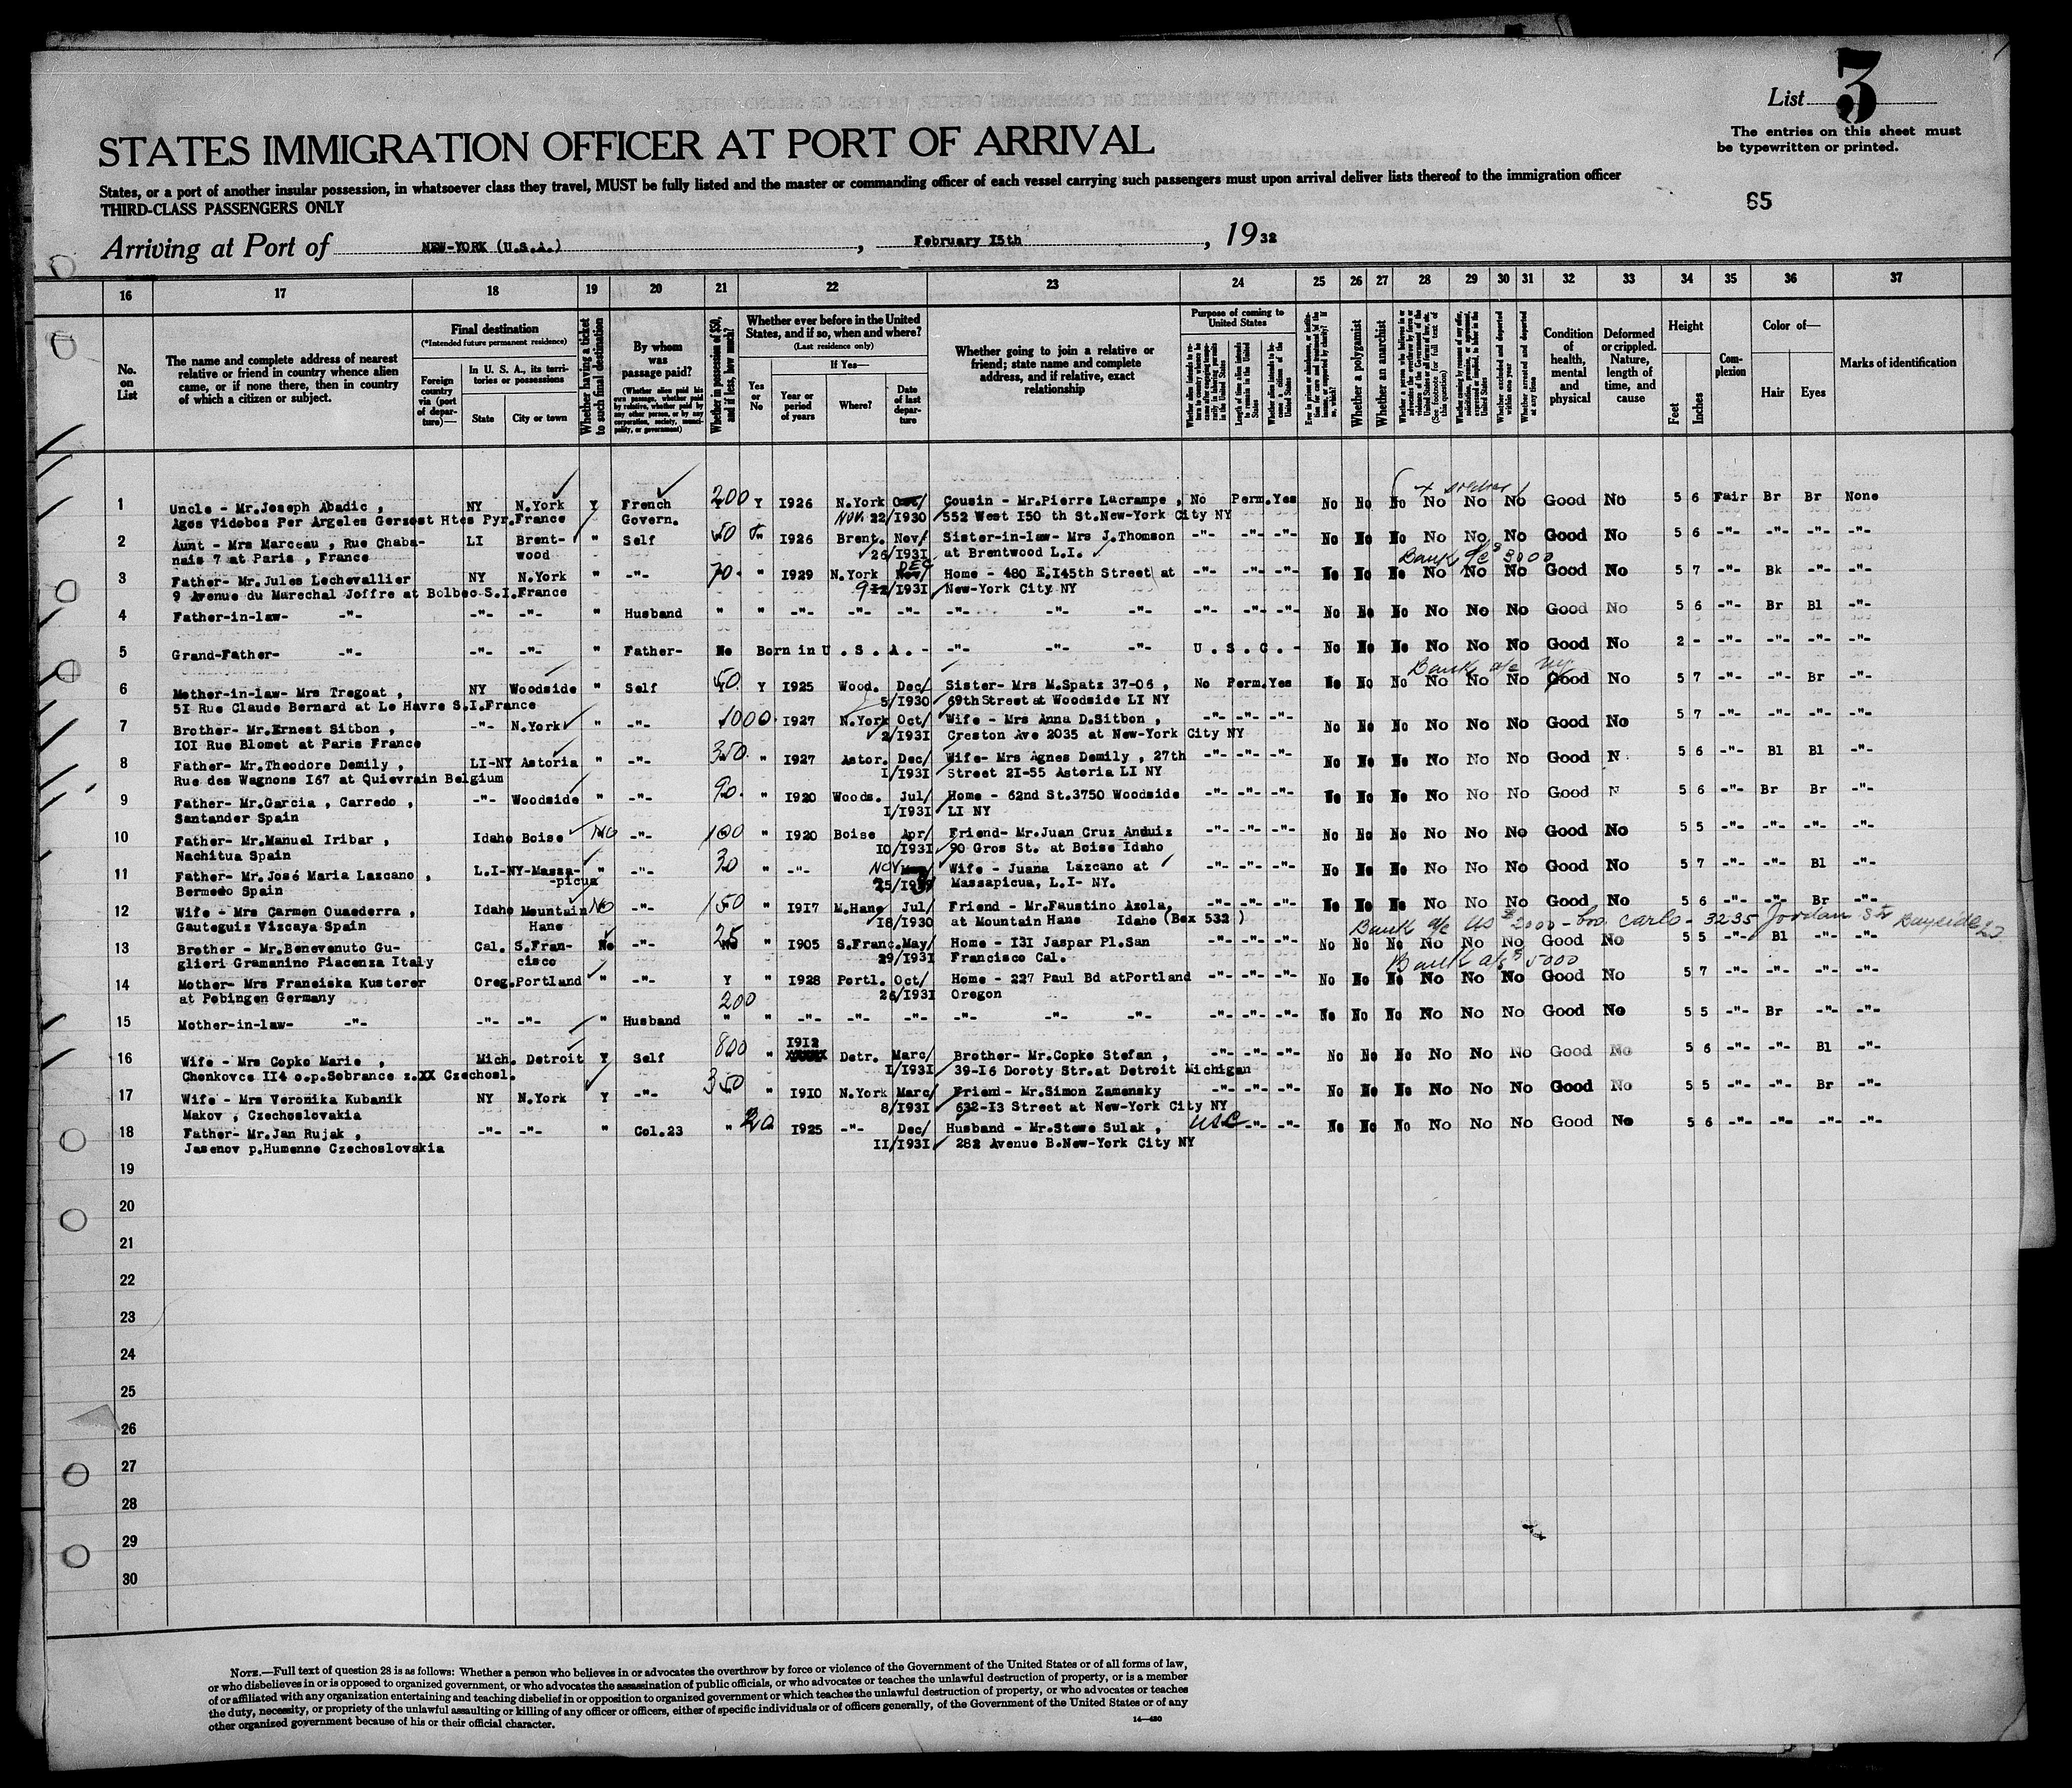 List 3
The entries on this sheet must
be typewritten or printed.
STATES IMMIGRATION OFFICER AT PORT OF ARRIVAL
States, or a port of another insular possession, in whatsoever class they travel, MUST be fully listed and the master or commanding officer of each vessel carrying such passengers must upon arrival deliver lists thereof to the immigration officer
THIRD-CLASS PASSENGERS ONLY
65
Arriving at Port of NEW-YORK (U.S.A.) , February 15th , 1932
16 17 18 19 20 21 22 23 24 25 26 27 28 29 30 31 32 33 34 35 36 37
No. on List
The name and complete address of nearest relative or friend in country whence alien came, or if none there, then in country of which a citizen or subject.
Final destination
(*Intended future permanent residence)
Foreign country via (port of departure)—
In U. S. A., its territories or possessions
State
City or town
Whether having a ticket to such final destination
By whom was passage paid?
(Whether alien paid his own passage, whether paid by relative, whether paid by any other person, or by any corporation, society, municipality, or government)
Whether in possession of $50, and if less, how much?
Whether ever before in the United States, and if so, when and where?
(Last residence only)
Yes or No
If Yes—
Year or period of years
Where?
Date of last departure
Whether going to join a relative or friend; state name and complete address, and if relative, exact relationship
Purpose of coming to United States
Whether a polygamist
Whether an anarchist
Whether excluded and deported within one year
Whether arrested and deported at any time
Condition of health, mental and physical
Deformed or crippled. Nature, length of time, and cause
Height
Feet
Inches
Complexion
Color of—
Hair
Eyes
Marks of identification
1 Uncle - Mr.Joseph Abadic , NY N.York Y French 200 Y 1926 N.York Oct/ Cousin - Mr.Pierre Lacrampe , No Perm.Yes No No No No No No Good No 5 6 Fair Br Br None
Agos Vidobos Per Argeles Gerzost Htes Pyr.France Govern. NOV. 22/1930 552 West 150 th St.New-York City NY
2 Aunt - Mrs Marceau , Rue Chaba- LI Brent- " Self 50 " 1926 Brent. Nov/ Sister-in-law- Mrs J.Thomson -"- -"- -"- No No No No No No Good No 5 6 -"- -"- -"- -"-
nais 7 at Paris , France wood 26/1931 at Brentwood L.I.
Bank a/c $3000
3 Father- Mr.Jules Lechevallier NY N.York " -"- 70. " 1929 N.York DEC Nov/ Home - 480 E.145th Street at -"- -"- -"- No No No No No No Good No 5 7 -"- Bk -"- -"-
9 Avenue du Marechal Joffre at Bolbec S.I.France 9 12/1931 New-York City NY
4 Father-in-law- -"- -"- -"- " Husband " " -"- -"- -"- -"- -"- -"- -"- -"- -"- No No No No No No Good No 5 6 -"- Br Bl -"-
5 Grand-Father- -"- -"- -"- " Father- No Born in U . S . A . - -"- -"- -"- U . S . C . - No No No No No No Good No 2 - -"- -"- -"- -"-
Bank a/c NY
6 Mother-in-law- Mrs Tregoat , NY Woodside " Self 50. Y 1925 Wood. Dec/ Sister- Mrs M.Spatz 37-06 , No Perm.Yes No No No No No No Good No 5 7 -"- -"- Br -"-
51 Rue Claude Bernard at Le Havre S.I.France 5/1930 69th Street at Woodside LI NY
7 Brother- Mr.Ernest Sitbon , -"- N.York " -"- 1000. 1927 N.York Oct/ Wife - Mrs Anna D.Sitbon , -"- -"- -"- No No No No No No Good No 5 7 -"- -"- -"- -"-
101 Rue Blomet at Paris France 2/1931 Creston Ave 2035 at New-York City NY
8 Father- Mr.Theodore Demily , LI-NY Astoria " -"- 350. " 1927 Astor. Dec/ Wife- Mrs Agnes Demily , 27th -"- -"- -"- No No No No No No Good N 5 6 -"- Bl Bl -"-
Rue des Wagnons 167 at Quievrain Belgium 1/1931 Street 21-55 Astoria LI NY
9 Father- Mr.Garcia , Carredo , -"- Woodside " -"- 90. " 1920 Woods. Jul/ Home - 62nd St.3750 Woodside -"- -"- -"- No No No No No No Good N 5 6 -"- Br Br -"-
Santander Spain 1/1931 LI NY
10 Father- Mr.Manuel Iribar , Idaho Boise No -"- 100 " 1920 Boise Apr/ Friend- Mr.Juan Cruz Anduiz -"- -"- -"- No No No No No No Good No 5 5 -"- -"- -"- -"-
Nachitua Spain 10/1931 90 Gros St. at Boise Idaho
11 Father- Mr.José Maria Lazcano , L.I-NY-Massa- " -"- 30 " -"- NOV Wife - Juana Lazcano at -"- -"- -"- No No No No No No Good No 5 7 -"- -"- Bl -"-
Bermedo Spain -picua 25/1931 Massapicua, L.I- NY.
12 Wife - Mrs Carmen Ouaederra , Idaho Mountain No -"- 150 " 1917 M.Hane Jul/ Friend - Mr.Faustino Azola, -"- -"- -"- No No No No No No Good No 5 6 -"- -"- Br -"-
Gauteguiz Vizcaya Spain Hane 18/1930 at Mountain Hane Idaho (Box 532 )
Bank a/c US $2000 - bro. Carlo - 3235 Jordan St Bayside
13 Brother - Mr.Benevenuto Gu- Cal. S.Fran- No -"- 25 " 1905 S.Franc.May/ Home - 131 Jaspar Pl.San -"- -"- -"- No No No No No No Good No 5 5 -"- Bl -"- -"-
glieri Gramanino Piacenza Italy cisco 29/1931 Francisco Cal.
Bank a/c $5000
14 Mother- Mrs Franciska Kusterer Oreg.Portland " -"- Y " 1928 Portl. Oct/ Home - 227 Paul Bd atPortland -"- -"- -"- No No No No No No Good No 5 7 -"- -"- -"- -"-
at Pebingen Germany 200 26/1931 Oregon
15 Mother-in-law- -"- -"- -"- " Husband " " -"- -"- -"- -"- -"- -"- -"- -"- -"- No No No No No No Good No 5 5 -"- Br -"- -"-
1912
16 Wife - Mrs Copko Marie , Mich. Detroit Y Self 800 " XXXXX Detr. Marc/ Brother- Mr.Copke Stefan , -"- -"- -"- No No No No No No Good No 5 6 -"- -"- Bl -"-
Chenkovce 114 o.p.Sobrance z.XX Czechosl. 1/1931 39-16 Doroty Str.at Detroit Michigan
17 Wife - Mrs Veronika Kubanik NY N.York Y -"- 350 " 1910 N.York Marc/ Friend - Mr.Simon Zamensky -"- -"- -"- No No No No No No Good No 5 5 -"- -"- Br -"-
Makov , Czechoslovakia 8/1931 632-13 Street at New-York City NY
18 Father- Mr.Jan Rujak , -"- -"- " Col.23 " 20 1925 -"- Dec/ Husband - Mr.Stewe Sulak , USC -"- -"- No No No No No No Good No 5 6 -"- -"- -"- -"-
Jasenov p.Humenne Czechoslovakia 11/1931 282 Avenue B.New-York City NY
19
20
21
22
23
24
25
26
27
28
29
30
NOTE.—Full text of question 28 is as follows: Whether a person who believes in or advocates the overthrow by force or violence of the Government of the United States or of all forms of law,
or who disbelieves in or is opposed to organized government, or who advocates the assassination of public officials, or who advocates or teaches the unlawful destruction of property, or is a member
of or affiliated with any organization entertaining and teaching disbelief in or opposition to organized government or which teaches the unlawful destruction of property, or who advocates or teaches
the duty, necessity, or propriety of the unlawful assaulting or killing of any officer or officers, either of specific individuals or of officers generally, of the Government of the United States or of any
other organized government because of his or their official character.
14—480